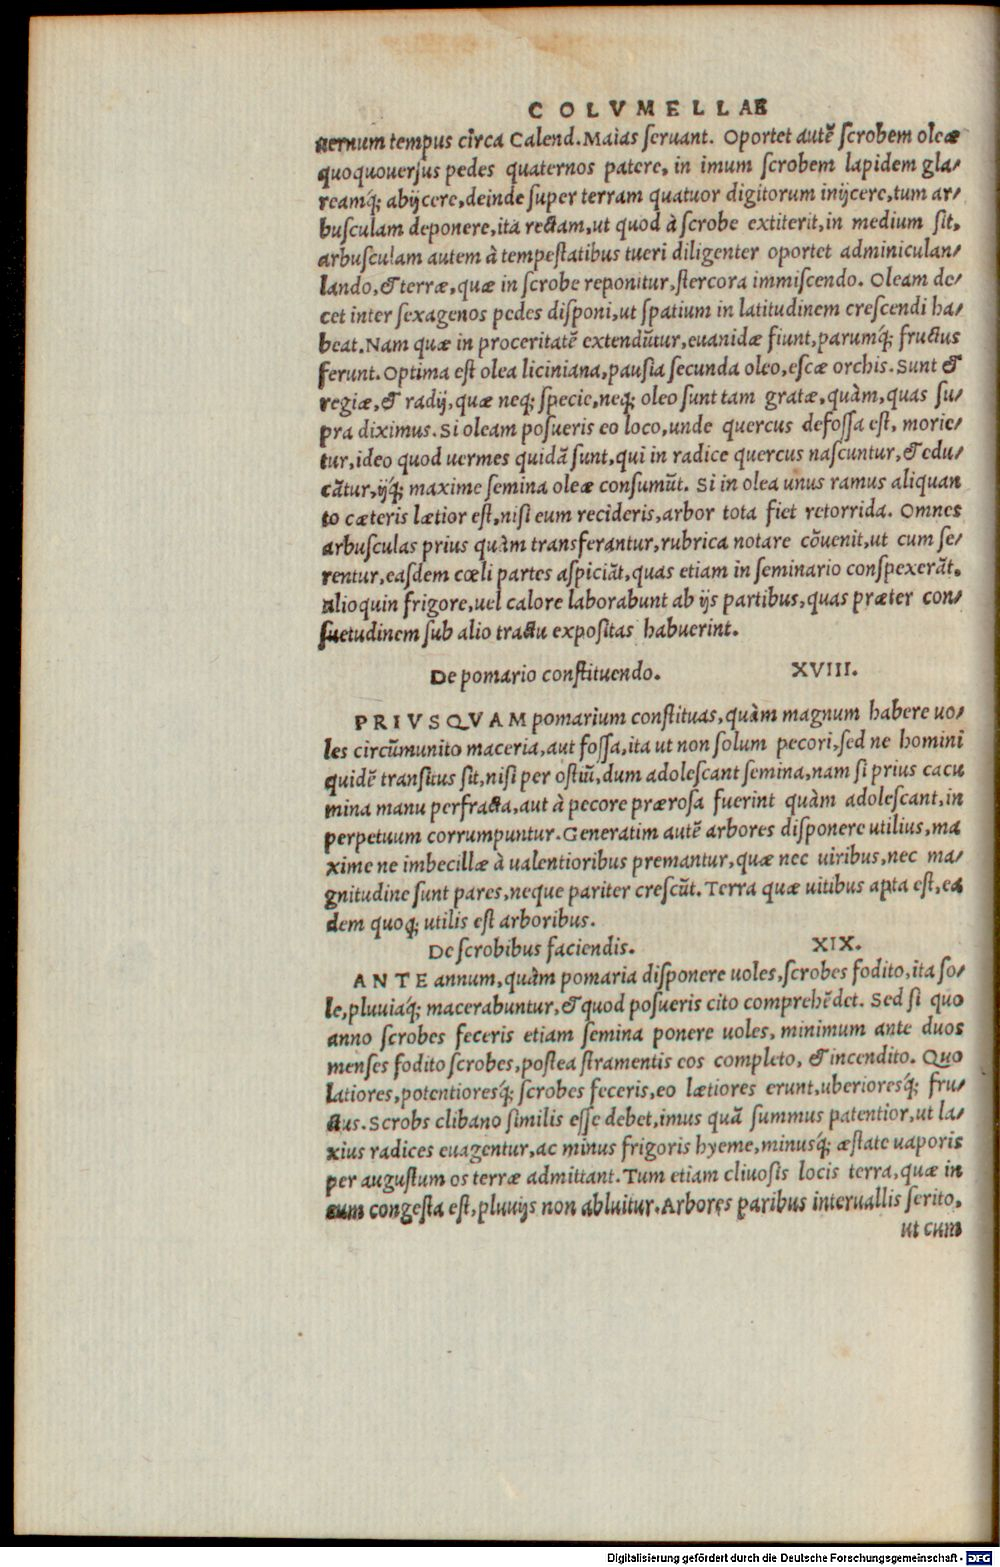 COLVMELLAE
uernum tempus circa Calend. Maias seruant. Oportet autẽ scrobem oleæ
quoquouersus pedes quaternos patere, in imum scrobem lapidem gla/
reamq́; abijcere, deinde super terram quatuor digitorum inijcere, tum ar/
busculam deponere, ita rectam, ut quod à scrobe extiterit, in medium sit,
arbusculam autem à tempestatibus tueri diligenter oportet adminiculan/
lando, & terræ, quæ in scrobe reponitur, stercora immiscendo. Oleam de/
cet inter sexagenos pedes disponi, ut spatium in latitudinem crescendi ha/
beat. Nam quæ in proceritatẽ extendũtur, euanidæ fiunt, parumq́; fructus
ferunt. Optima est olea liciniana, pausia secunda oleo, escæ orchis. Sunt &
regiæ, & radij, quæ neq; specie, neq; oleo sunt tam gratæ, quàm, quas su/
pra diximus. Si oleam posueris eo loco, unde quercus defossa est, morie/
tur, ideo quod uermes quidã sunt, qui in radice quercus nascuntur, & edu/
cãtur, ijq́; maxime semina oleæ consumũt. Si in olea unus ramus aliquan
to cæteris lætior est, nisi eum recideris, arbor tota fiet retorrida. Omnes
arbusculas prius quàm transferantur, rubrica notare cõuenit, ut cum se/
rentur, easdem cœli partes aspiciãt, quas etiam in seminario conspexerãt.
alioquin frigore, uel calore laborabunt ab ijs partibus, quas præter con/
suetudinem sub alio tractu expositas habuerint.
De pomario constituendo. XVIII.
PRIVSQVAM pomarium constituas, quàm magnum habere uo/
les circũmunito maceria, aut fossa, ita ut non solum pecori, sed ne homini
quidẽ transitus sit, nisi per ostiũ, dum adolescant semina, nam si prius cacu
mina manu perfracta, aut à pecore prærosa fuerint quàm adolescant, in
perpetuum corrumpuntur. Generatim autẽ arbores disponere utilius, ma
xime ne imbecillæ à ualentioribus premantur, quæ nec uiribus, nec ma/
gnitudine sunt pares, neque pariter crescũt. Terra quæ uitibus apta est, ea
dem quoq; utilis est arboribus.
De scrobibus faciendis. XIX.
ANTE annum, quàm pomaria disponere uoles, scrobes fodito, ita so/
le, pluuiaq́; macerabuntur, & quod posueris cito comprehẽdet. Sed si quo
anno scrobes feceris etiam semina ponere uoles, minimum ante duos
menses fodito scrobes, postea stramentis eos completo, & incendito. Quo
latiores, potentioresq́; scrobes feceris, eo lætiores erunt, uberioresq́; fru/
ctus. Scrobs clibano similis esse debet, imus quã summus patentior, ut la/
xius radices euagentur, ac minus frigoris hyeme, minusq́; æstate uaporis
per augustum os terræ admittant. Tum etiam cliuosis locis terra, quæ in
eum congesta est, pluuijs non abluitur. Arbores paribus interuallis serito,
ut cum
Digitalisierung gefördert durch die Deutsche Forschungsgemeinschaft - DFG